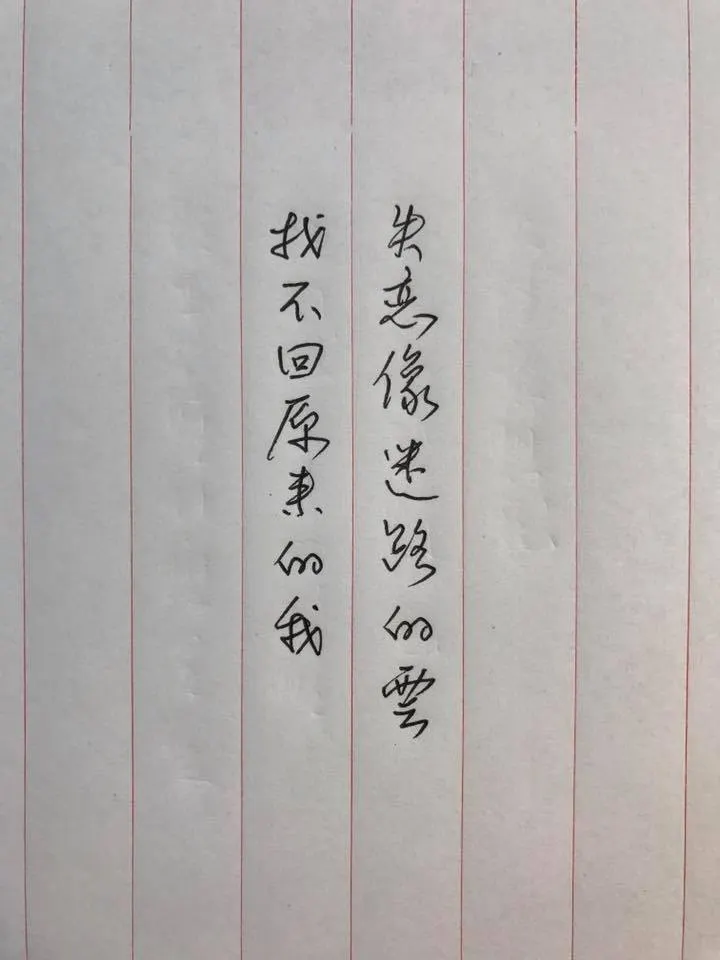 失恋像迷路的雲
找不回原来的我